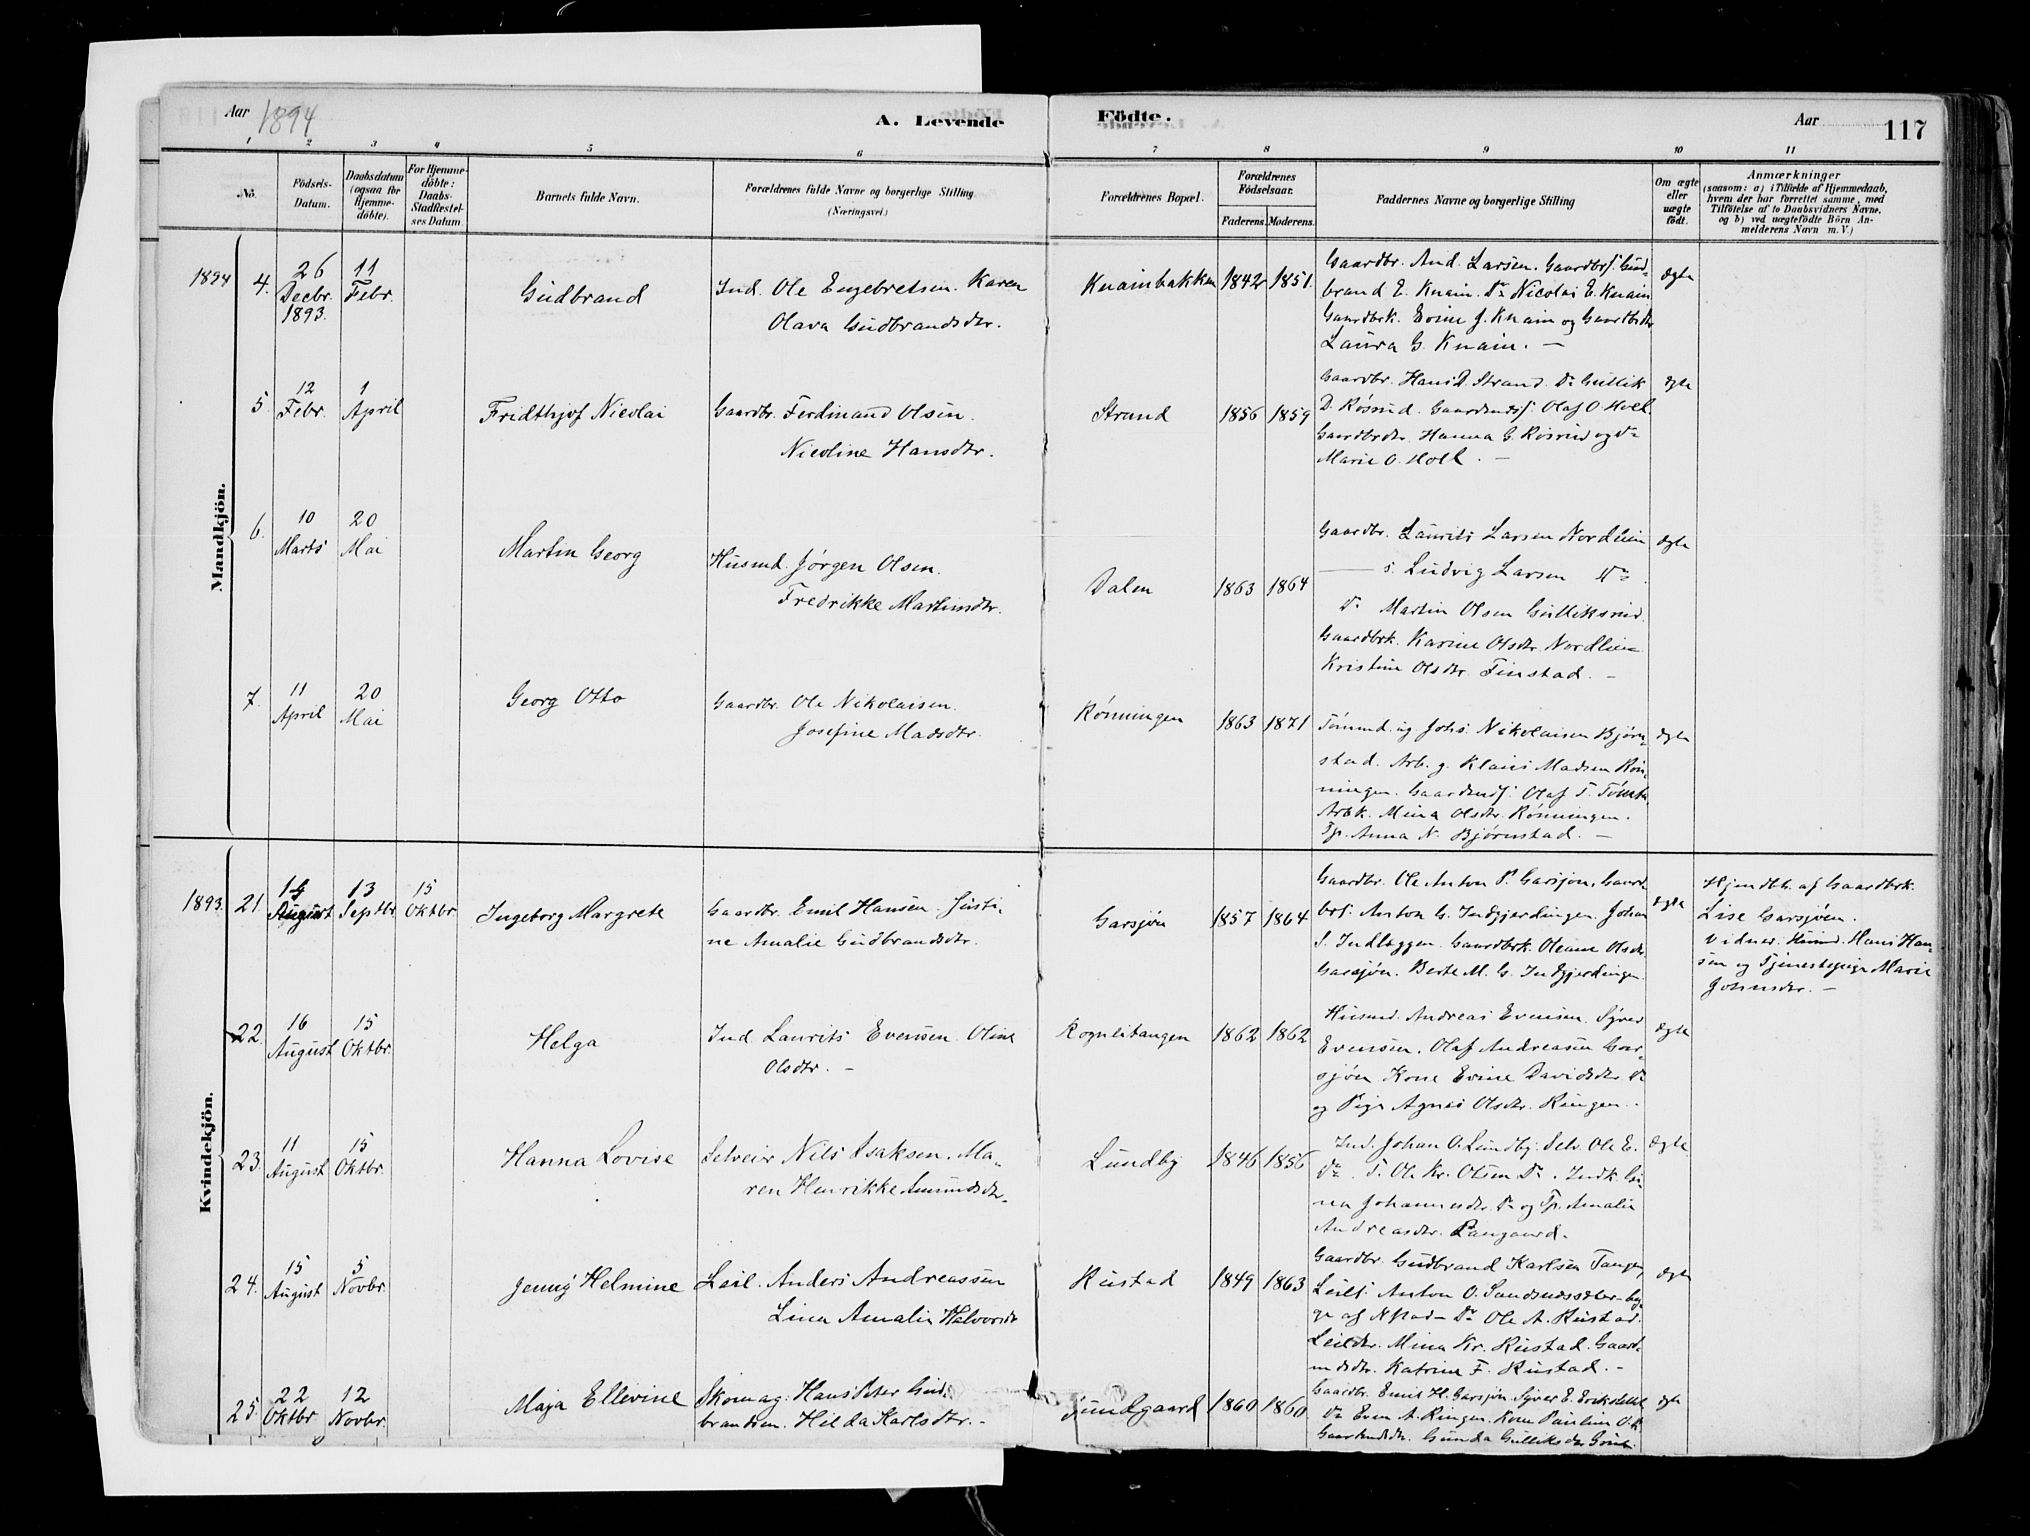 Aar 1894
A. Levende
Födte.
Aar
117
1 2 3 4 5 6 7 8 9 10 11
No.
Födsels-
Datum.
Daabsdatum
(ogsaa for
Hjemme-
döbte).
For Hjemme-
döbte:
Daabs-
Stadfæstel-
ses Datum
Barnets fulde Navn.
Forældrenes fulde Navne og borgerlige Stilling
(Næringsvei.)
Forældrenes Bopæl.
Forældrenes
Födselsaar.
Faderens. Moderens.
Faddernes Navne og borgerlige Stilling
Om ægte
eller
uægte
födt.
Anmærkninger
(saasom: a) i Tilfælde af Hjemmedaab,
hvem der har forrettet samme, med
Tilföielse af to Daabsvidners Navne,
og b) ved uægtefödte Börn An-
melderens Navn m. V.)
Mandkjön.
1894 4.
26
Decbr.
1893.
11
Febr.
Gudbrand
Ind. Ole Engebretsen. Karen
Olava Gudbrandsdtr.
Knainbakken
1842 1851.
Gaardbr. And. Larsen. Gaardbrs. Gud-
brand E. Knain. Do Nicolai E. Knain
Gaardbrk. Evine J. Knain og Gaardbrdtr
Laura G. Knain. —
Ægte
5.
12
Febr.
1
April
Fridthjof Nicolai
Gaardbr. Ferdinand Olsen.
Nicoline Hansdtr.
Strand
1856 1859
Gaardbr. Hans D. Strand. Do Gullik
D. Røsrud. Gaardmds. Olaf O. Holt.
Gaardbrdtr. Hanna G. Røsrud og Do
Marie O. Holt. —
Ægte
6.
10
Marts
20
Mai
Martin Georg
Husmd. Jørgen Olsen.
Fredrikke Martinsdtr.
Dalen
1863 1864
Gaardbr. Laurits Larsen Nordlien
— s. Ludvig Larsen Do
Do Martin Olsen Gulliksrud.
Gaardbrk. Karine Olsdtr. Nordlien
Kristine Olsdtr. Finstad. —
Ægte
7.
11
April
20
Mai
Georg Otto
Gaardbr. Ole Nikolaisen.
Josefine Madsdtr.
Rønningen
1863 1871
Tømmd. og Johs. Nikolaisen Bjørn-
stad. Arb. g. Klaus Madsen Røn-
ningen. Gaardmds. Olaf T.
Arbk. Mina Olsdtr. Rønningen.
Tp. Anna N. Bjørnstad. —
Ægte
Kvindekjön.
1893. 21.
14
August
13
Septbr.
15
Oktbr.
Ingeborg Margrete
Gaardbr. Emil Hansen. Justi-
ne Amalie Gudbrandsdtr.
Garsjøn
1857 1864
Gaardbr. Ole Anton P. Garsjøn, Gaard-
brs. Anton G. Indgjerdingen. Johan
S. Indlæggen. Gaardbrk. Oleane Olsdtr.
Garsjøn. Berte M. G. Indgjerdingen.
Ægte
Hjemdbt. af Gaardbrk.
Lise Garsjøen.
Vidner. Husmd. Hans Han-
sen og Tjenestepige Marie
Johnsdtr. —
22.
16
August
15
Oktbr.
Helga
Ind. Laurits Evensen. Oline
Olsdtr. —
Rognlitangen
1862 1862
Husmd. Andreas Evensen. Syver
Evensen. Olaf Andreasen Gar-
sjøn Kone Evine Davidsdtr. Do
og Pige Agnes Olsdtr. Ringen.
Ægte
23.
11
August
15
Oktbr.
Hanna Lovise
Selveier Nils Isaksen. Ma-
ren Henrikke Amundsdtr.
Lundby
1846 1856
Ind. Johan O. Lundby. Selv. Ole E.
Do. S. Ole Kr. Olsen Do. Indk. Gi-
na Johannesdtr. Do og Tp. Amalie
Andreasdtr. Langaard.
Ægte
24.
15
August
5
Novbr.
Jenny Helmine
Leil. Anders Andreassen
Lina Amalie Halvorsdtr
Rustad
1849 1863
Gaardbr. Gudbrand Karlsen Tangen,
Leils. Anton O.
Do Ole A. Rustad.
Leildtr. Mina Kr. Rustad. Gaard-
mdsdtr. Katrine F. Rustad. —
Ægte
25.
22
Oktbr.
12
Novbr.
Maja Ellevine
Skomag. Hans Peter Gud-
brandsen. Hilda Karlsdtr. —
1860 1860
Gaardbr. Emil H. Garsjøn Syver E.
Do Even A. Ringen. Kone Pauline O.
Gaardmdsdtr. Gunda Gulliksdtr
Ægte